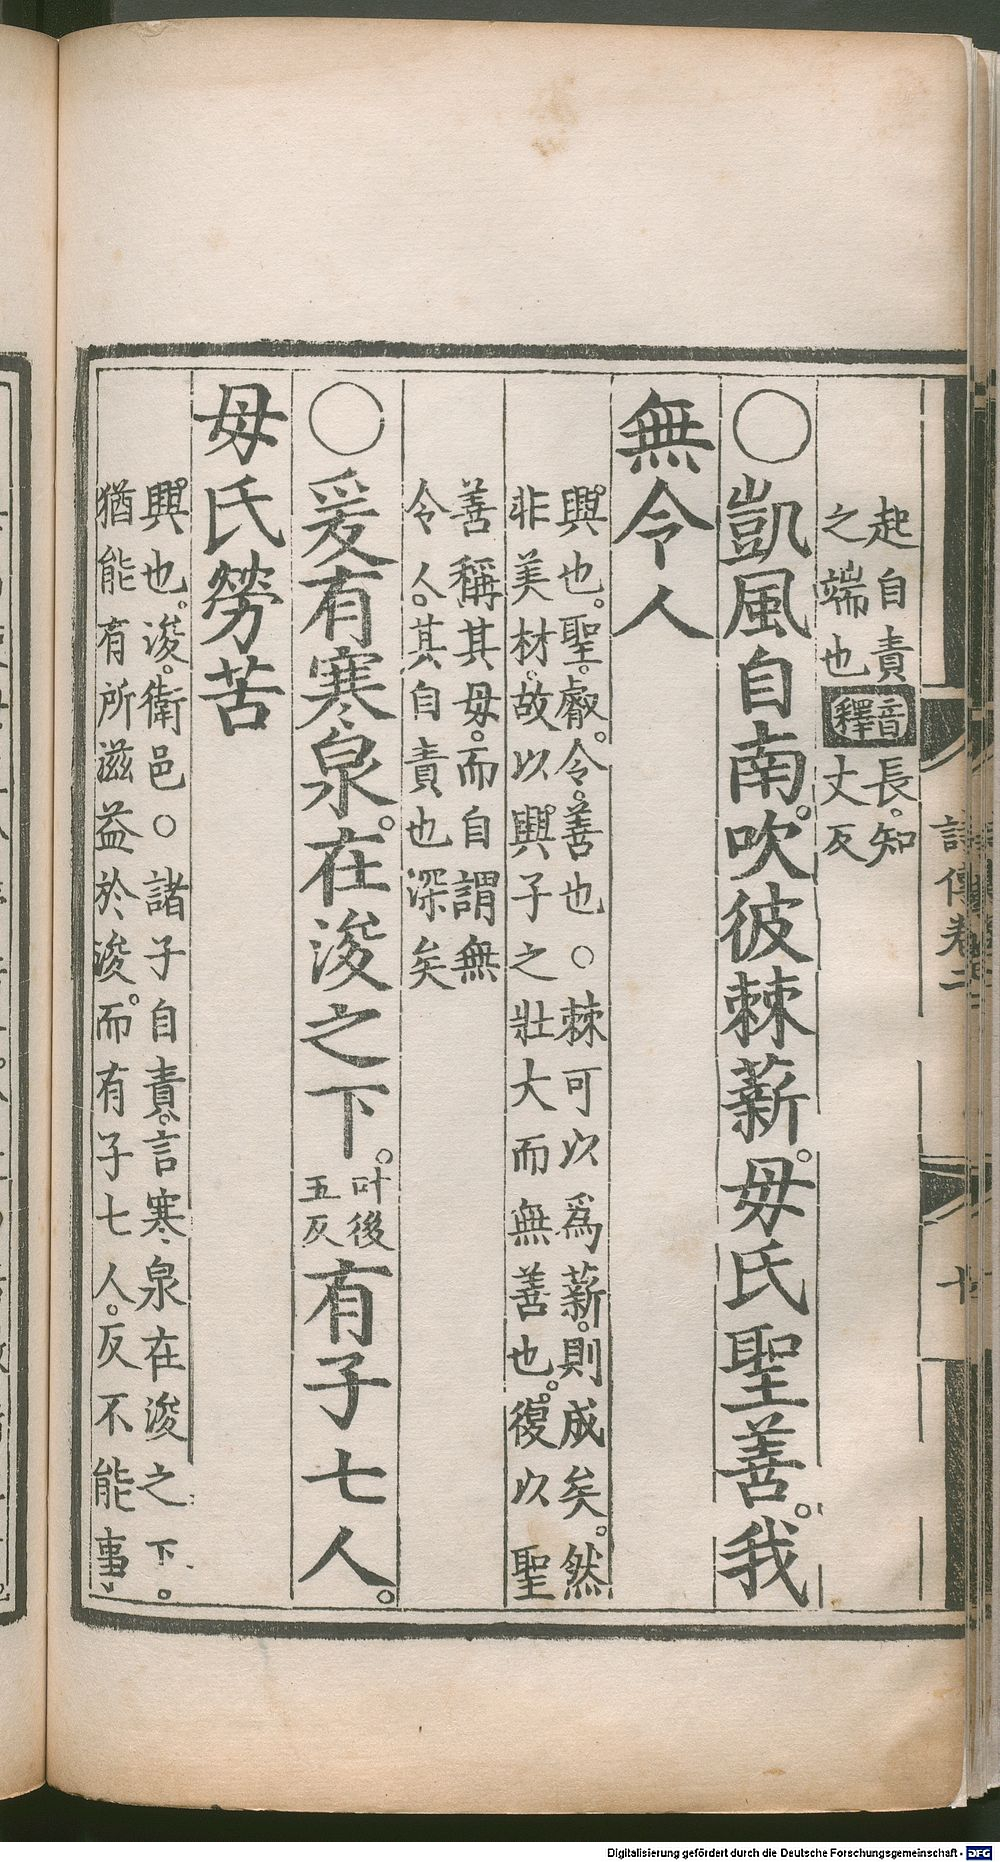 起自責
之端也
音釋
長。知
丈反
○凱風自南。吹彼棘薪。母氏聖善。我
無令人
興也。聖。叡。令。善也○棘可以爲薪。則成矣。然
非美材。故以興子之壯大而無善也。復以聖
善稱其母。而自謂無
令人。其自責也深矣
○爰有寒泉。在浚之下。
叶後
五反
有子七人。
母氏勞苦
興也。浚。衛邑○諸子自責。言寒泉在浚之下。
猶能有所滋益於浚。而有子七人。反不能事
詩傳卷二
Digitalisierung gefördert durch die Deutsche Forschungsgemeinschaft - DFG